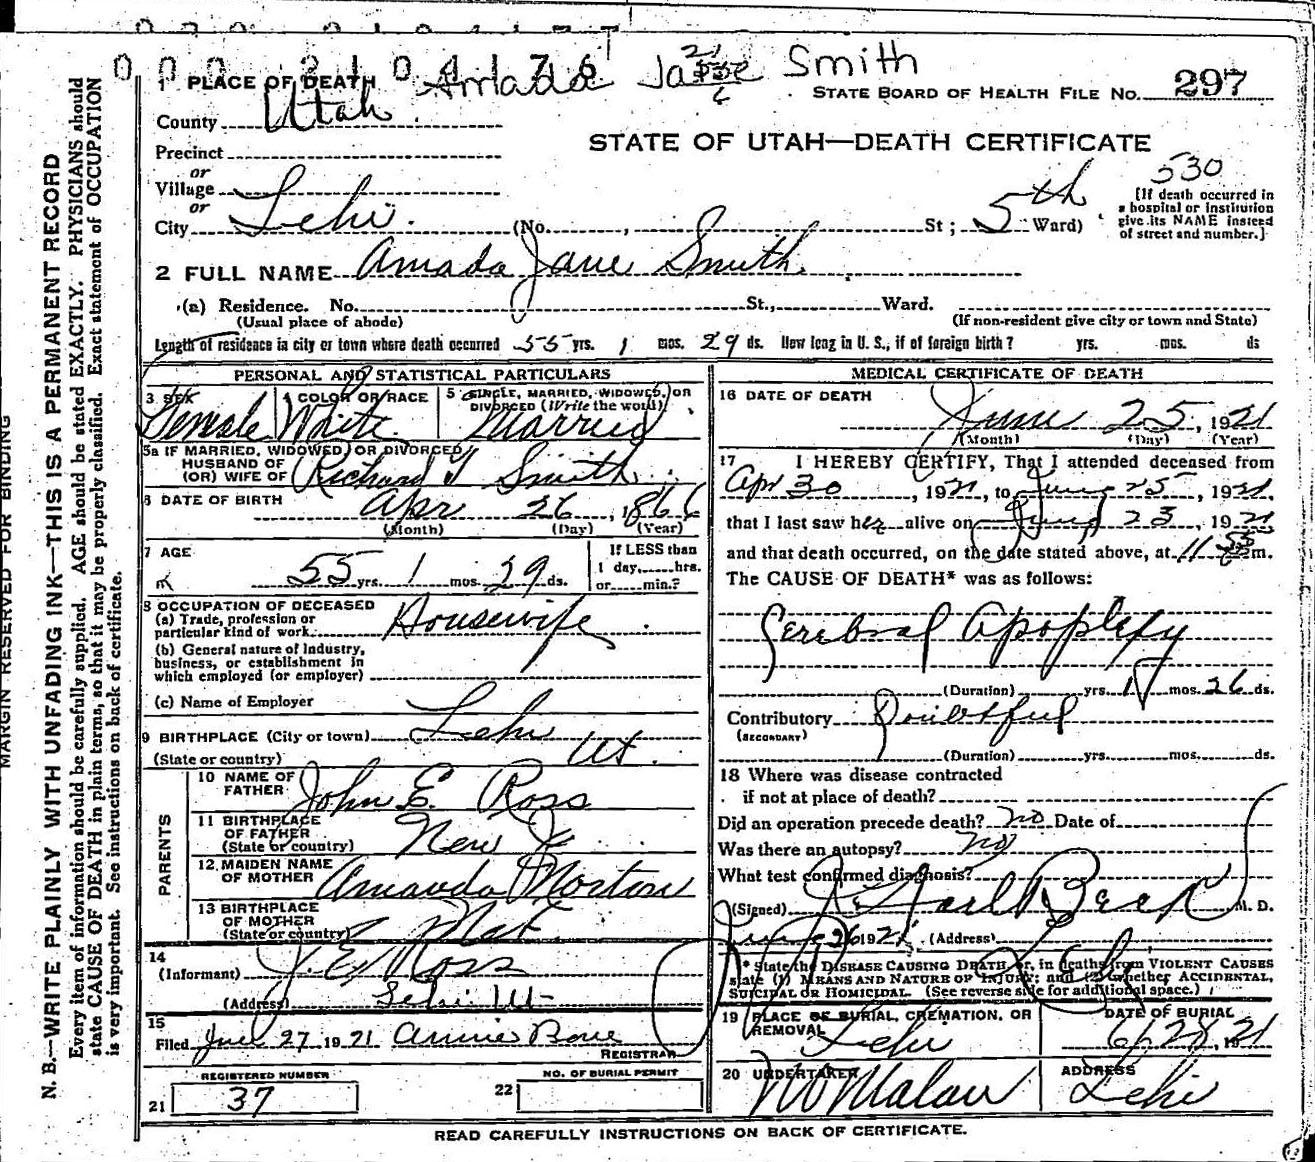 0002104176
Amada Jane Smith
1 PLACE OF DEATH
STATE BOARD OF HEALTH FILE NO. 297
County Utah
STATE OF UTAH—DEATH CERTIFICATE
Precinct
or
Village
or
City Lehi. (No. , St; 5th Ward)
530
[If death occurred in a hospital or institution give its NAME instead of street and number.]
2 FULL NAME Amada Jane Smith
(a) Residence. No. St., Ward.
(Usual place of abode) (If non-resident give city or town and State)
Length of residence in city or town where death occurred 55 yrs. 1 mos. 29 ds. How long in U. S., if of foreign birth? yrs. mos. ds
PERSONAL AND STATISTICAL PARTICULARS
3 SEX Female
4 COLOR OR RACE White
5 SINGLE, MARRIED, WIDOWED, OR DIVORCED (Write the word) Married
5a IF MARRIED, WIDOWED, OR DIVORCED
HUSBAND OF
(OR) WIFE OF Richard T Smith
6 DATE OF BIRTH Apr 26, 1866
(Month) (Day) (Year)
7 AGE 55 yrs. 1 mos. 29 ds.
If LESS than
1 day, hrs.
or min.?
8 OCCUPATION OF DECEASED Housewife
(a) Trade, profession or
particular kind of work
(b) General nature of Industry,
business, or establishment in
which employed (or employer)
(c) Name of Employer
9 BIRTHPLACE (City or town) Lehi
(State or country) Ut.
PARENTS
10 NAME OF FATHER John E. Ross
11 BIRTHPLACE OF FATHER
(State or country) New J.
12 MAIDEN NAME OF MOTHER Amanda Norton
13 BIRTHPLACE OF MOTHER
(State or country)
14
(Informant) J. E. Ross
(Address) Lehi Ut
15
Filed 27 1921 Annie
REGISTRAR
REGISTERED NUMBER
21 37
NO. OF BURIAL PERMIT
22
MEDICAL CERTIFICATE OF DEATH
16 DATE OF DEATH
June 25, 1921
(Month) (Day) (Year)
17 I HEREBY CERTIFY, That I attended deceased from
Apr 30, 1921, to June 25, 1921,
that I last saw her alive on June 23, 1921
and that death occurred, on the date stated above, at 11 55 m.
The CAUSE OF DEATH* was as follows:
Cerebral Apoplexy
(Duration) yrs. 1 mos. 26 ds.
Contributory Doubtful
(SECONDARY)
(Duration) yrs. mos. ds.
18 Where was disease contracted
if not at place of death?
Did an operation precede death? no Date of
Was there an autopsy? no
What test confirmed diagnosis?
(Signed) M. D.
June 26 1921, (Address) Lehi
* State the DISEASE CAUSING DEATH or, in deaths from VIOLENT CAUSES
state (1) MEANS AND NATURE OF INJURY; and (2) whether ACCIDENTAL,
SUICIDAL OR HOMICIDAL. (See reverse side for additional space.)
19 PLACE OF BURIAL, CREMATION, OR REMOVAL Lehi
DATE OF BURIAL 6/28, 1921
20 UNDERTAKER
ADDRESS Lehi
READ CAREFULLY INSTRUCTIONS ON BACK OF CERTIFICATE.
MARGIN RESERVED FOR BINDING
N. B.—WRITE PLAINLY WITH UNFADING INK—THIS IS A PERMANENT RECORD
Every item of information should be carefully supplied. AGE should be stated EXACTLY. PHYSICIANS should
state CAUSE OF DEATH in plain terms, so that it may be properly classified. Exact statement of OCCUPATION
is very important. See instructions on back of certificate.